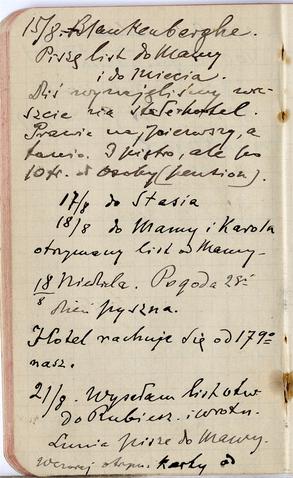 15/8. Blankenberghe.
Piszę list do Mamy
i do Miecia.
Dziś wynajęliśmy wre-
szcie na Hotel.
Prawie najpierwszy, a
tanio. I piętro, ale po
10 fr. d osoby (pension).
17/8 do Stasia
18/8 do Mamy i Karola
otrzymany list od Mamy.
18/8 Niedziela. Pogoda
dzień pyszna.
Hotel rachuje się od 17go
nasz.
21/8. Wysełam list otw
do Rubiesz. i
Lunia pisze do Mamy.
Wczoraj otrzym. kartę od